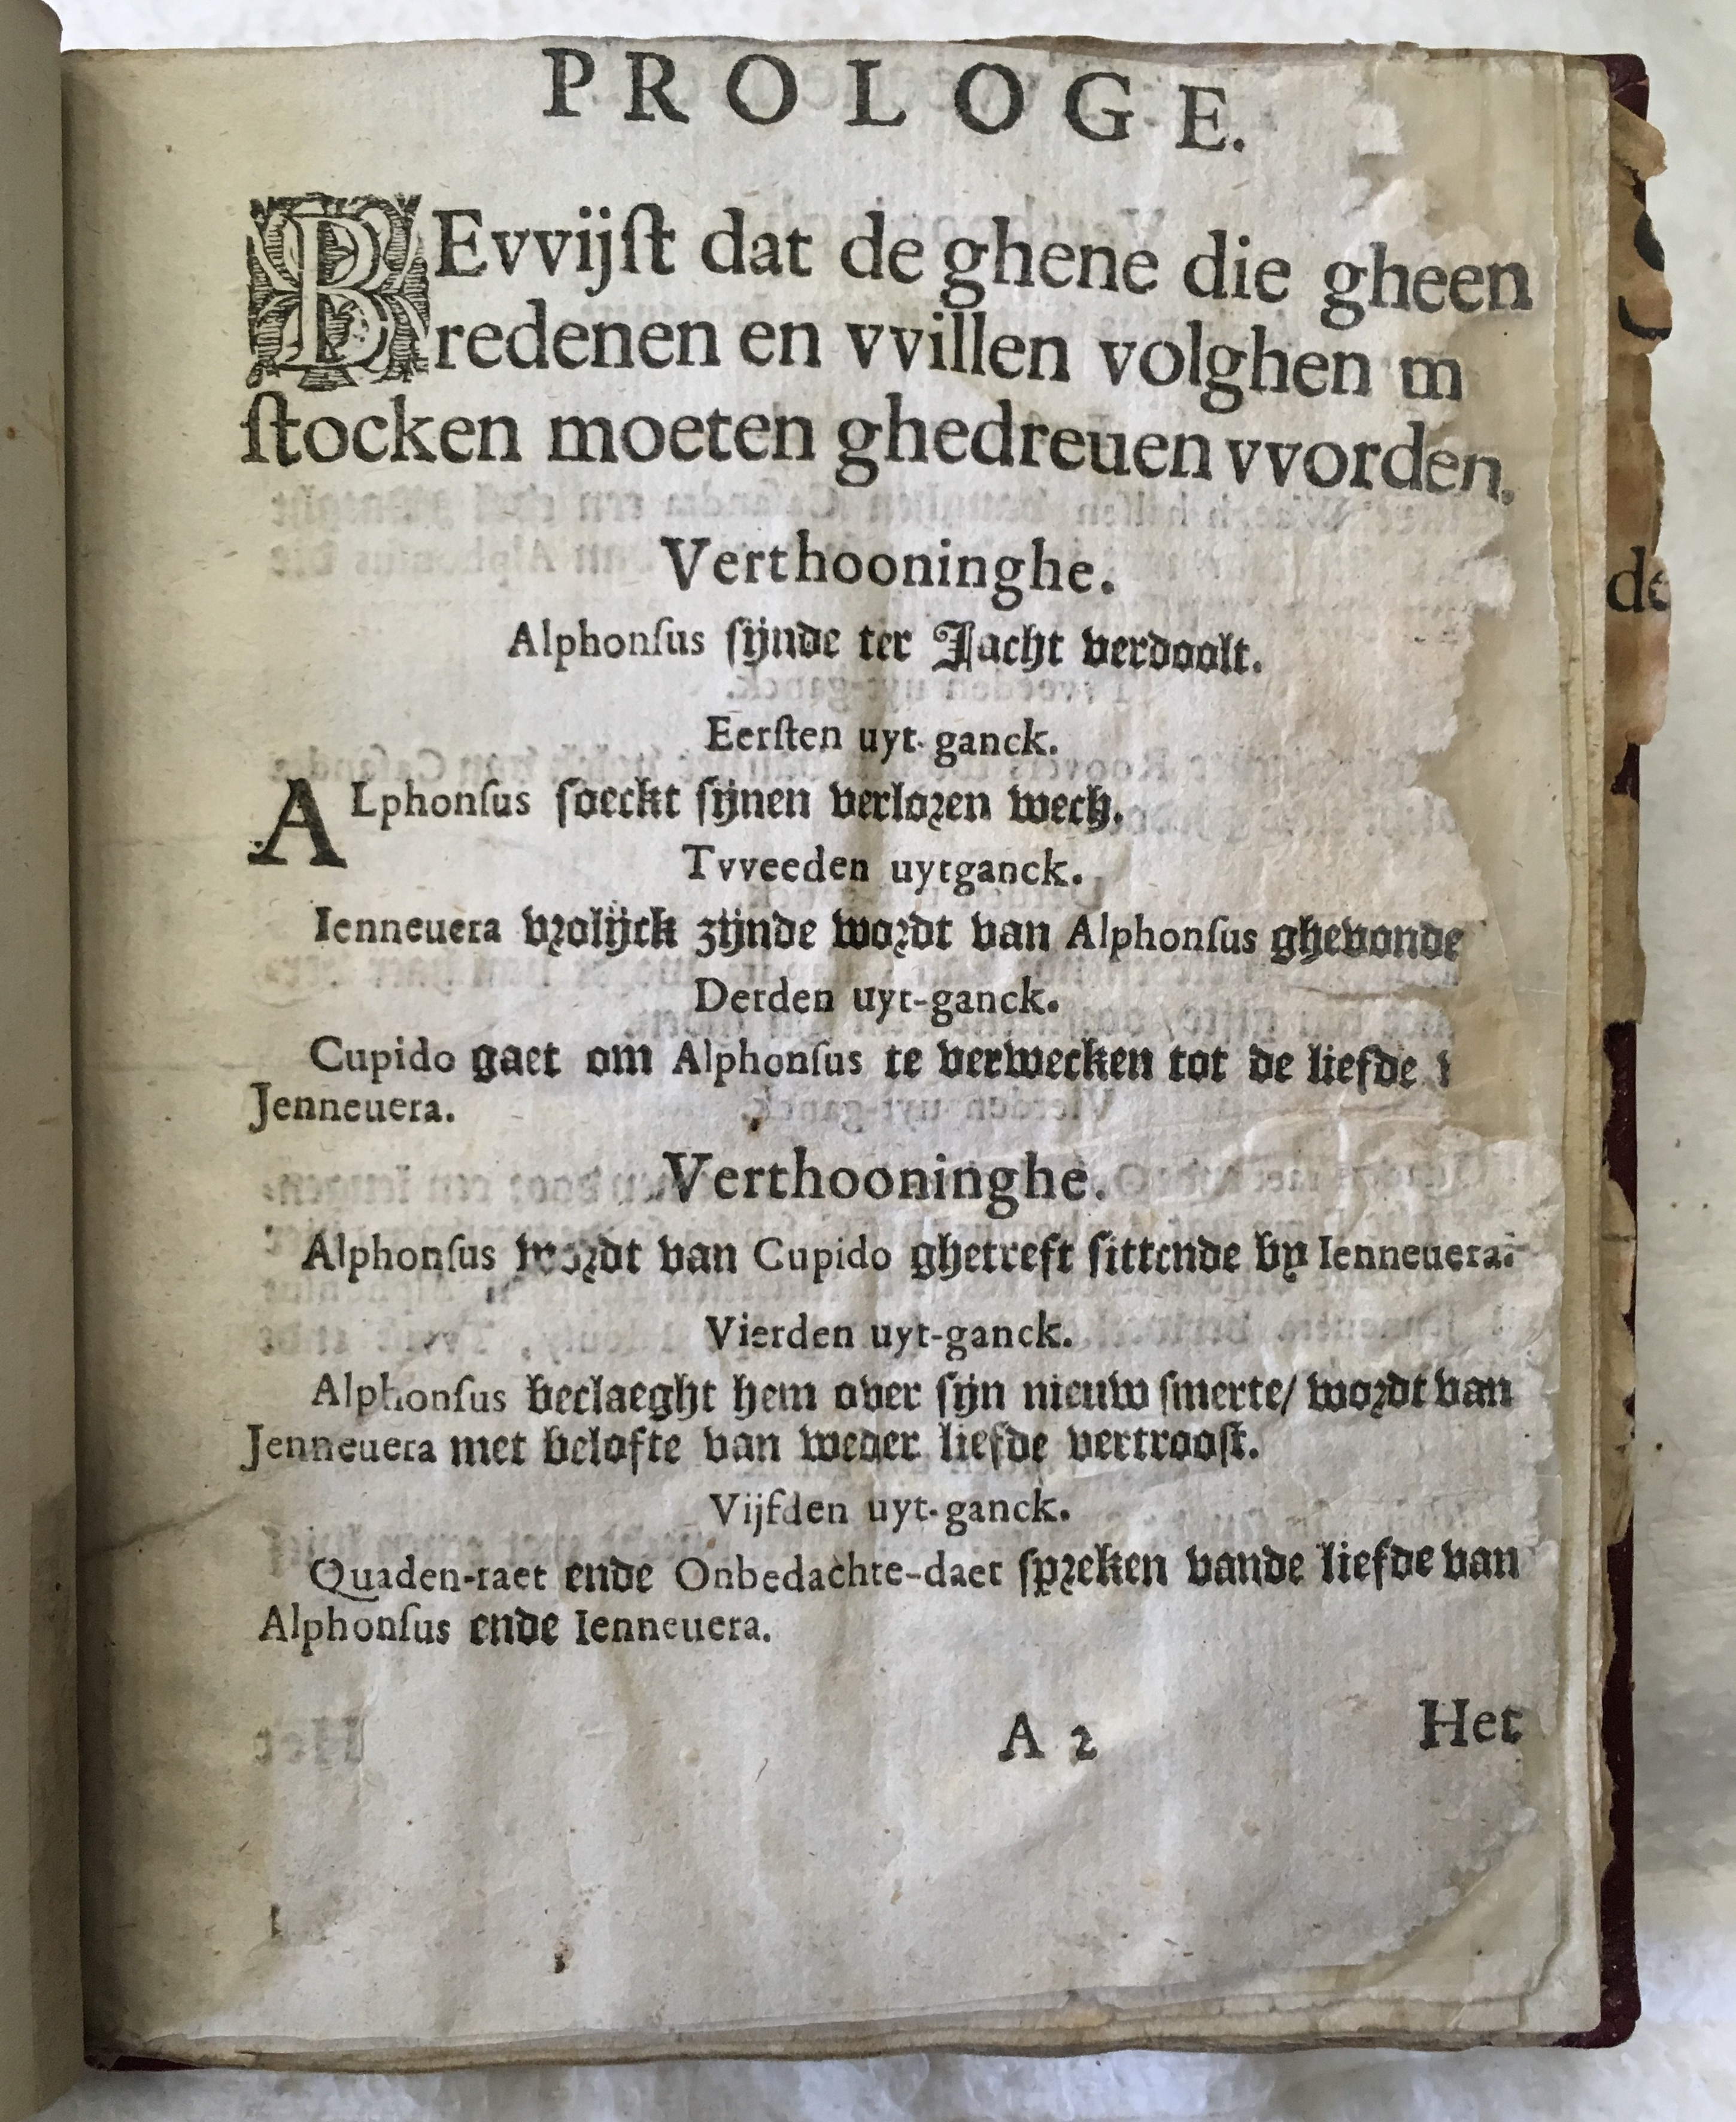 PROLOGE.
BEvvijſt dat de ghene die gheen
redenen en vvillen volghen m
ſtocken moeten ghedreuen vvorden.
Verthooninghe.
Alphonſus ſijnde ter Jacht verdoolt.
Eerſten uyt-ganck.
ALphonſus ſoeckt ſijnen verloꝛen wech.
Tvveeden uytganck.
Ienneuera vꝛolijck zijnde woꝛdt van Alphonſus ghevonde
Derden uyt-ganck.
Cupido gaet om Alphonſus te verwecken tot de liefde
Jenneuera.
Verthooninghe.
Alphonſus woꝛdt van Cupido ghetreft ſittende by Ienneuera.
Vierden uyt-ganck.
Alphonſus beclaeght hem over ſijn nieuw ſmerte/ woꝛdt van
Jenneuera met belofte van weder liefde vertrooſt.
Vijfden uyt-ganck.
Quaden-raet ende Onbedachte-daet ſpꝛeken vande liefde van
Alphonſus ende Ienneuera.
A 2 Het
de